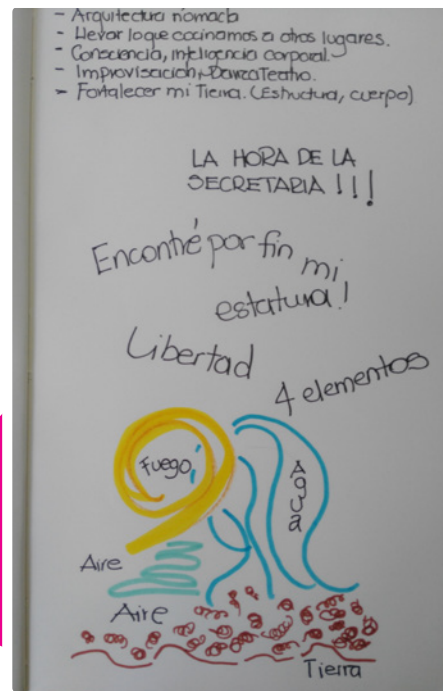 - Arquitectura nómada
- Llevar lo que cocinamos a otros lugares.
- Consciencia, inteligencia corporal.
- Improvisación, Danza Teatro.
- Fortalecer mi Tierra. (Estructura, cuerpo)
LA HORA DE LA
SECRETARIA !!!
Encontré por fin mi
estatura!
Libertad
4 elementos
Fuego
Agua
Aire
Aire
Tierra